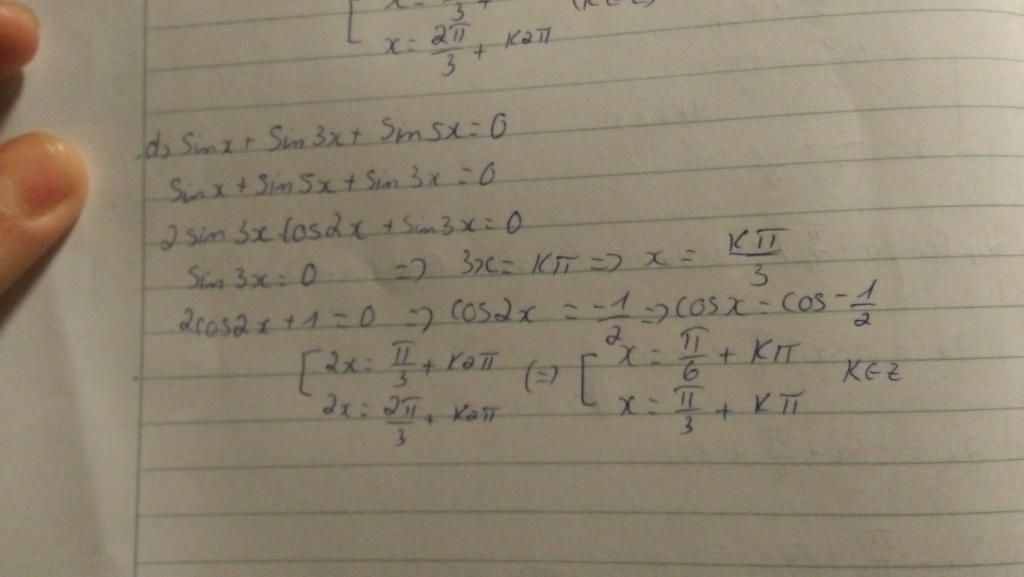 x = /3 + (K∈Z)
x = 2π/3 + K2π
d, Sin x + Sin 3x + Sin 5x = 0
Sin x + Sin 5x + Sin 3x = 0
2 sin 3x cos2x + Sin 3x = 0
Sin 3x = 0 => 3x = Kπ => x = Kπ/3
2cos2x + 1 = 0 => cos2x = -1/2 => cosx = cos -1/2
[ 2x = π/3 + K2π (=> [ x = π/6 + Kπ K∈Z
2x = 2π/3 + K2π x = π/3 + Kπ